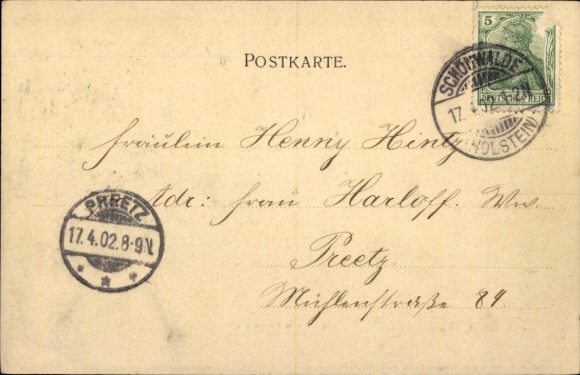 POSTKARTE.
5
DEUTSCHES REICH
SCHÖNWALDE
17.4.02
(HOLSTEIN)
Fräulein Henny Hintz
Adr: Frau Harloff. Ww.
Preetz.
Mühlenstraße 84.
PREETZ
17.4.02.8-9V.